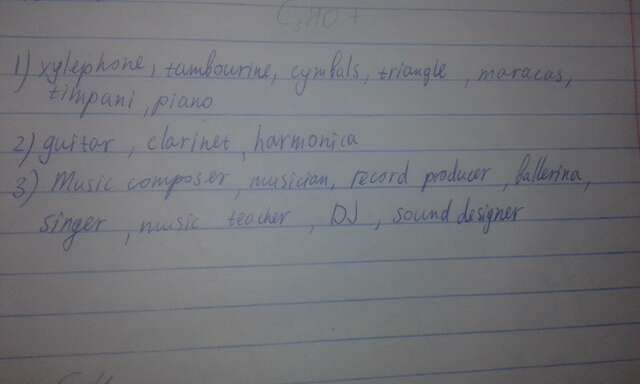 1) xylephone, tambourine, cymbals, triangle, maracas,
timpani, piano
2) guitar, clarinet, harmonica
3) Music composer, musician, record producer, ballerina,
singer, music teacher, DJ, sound designer